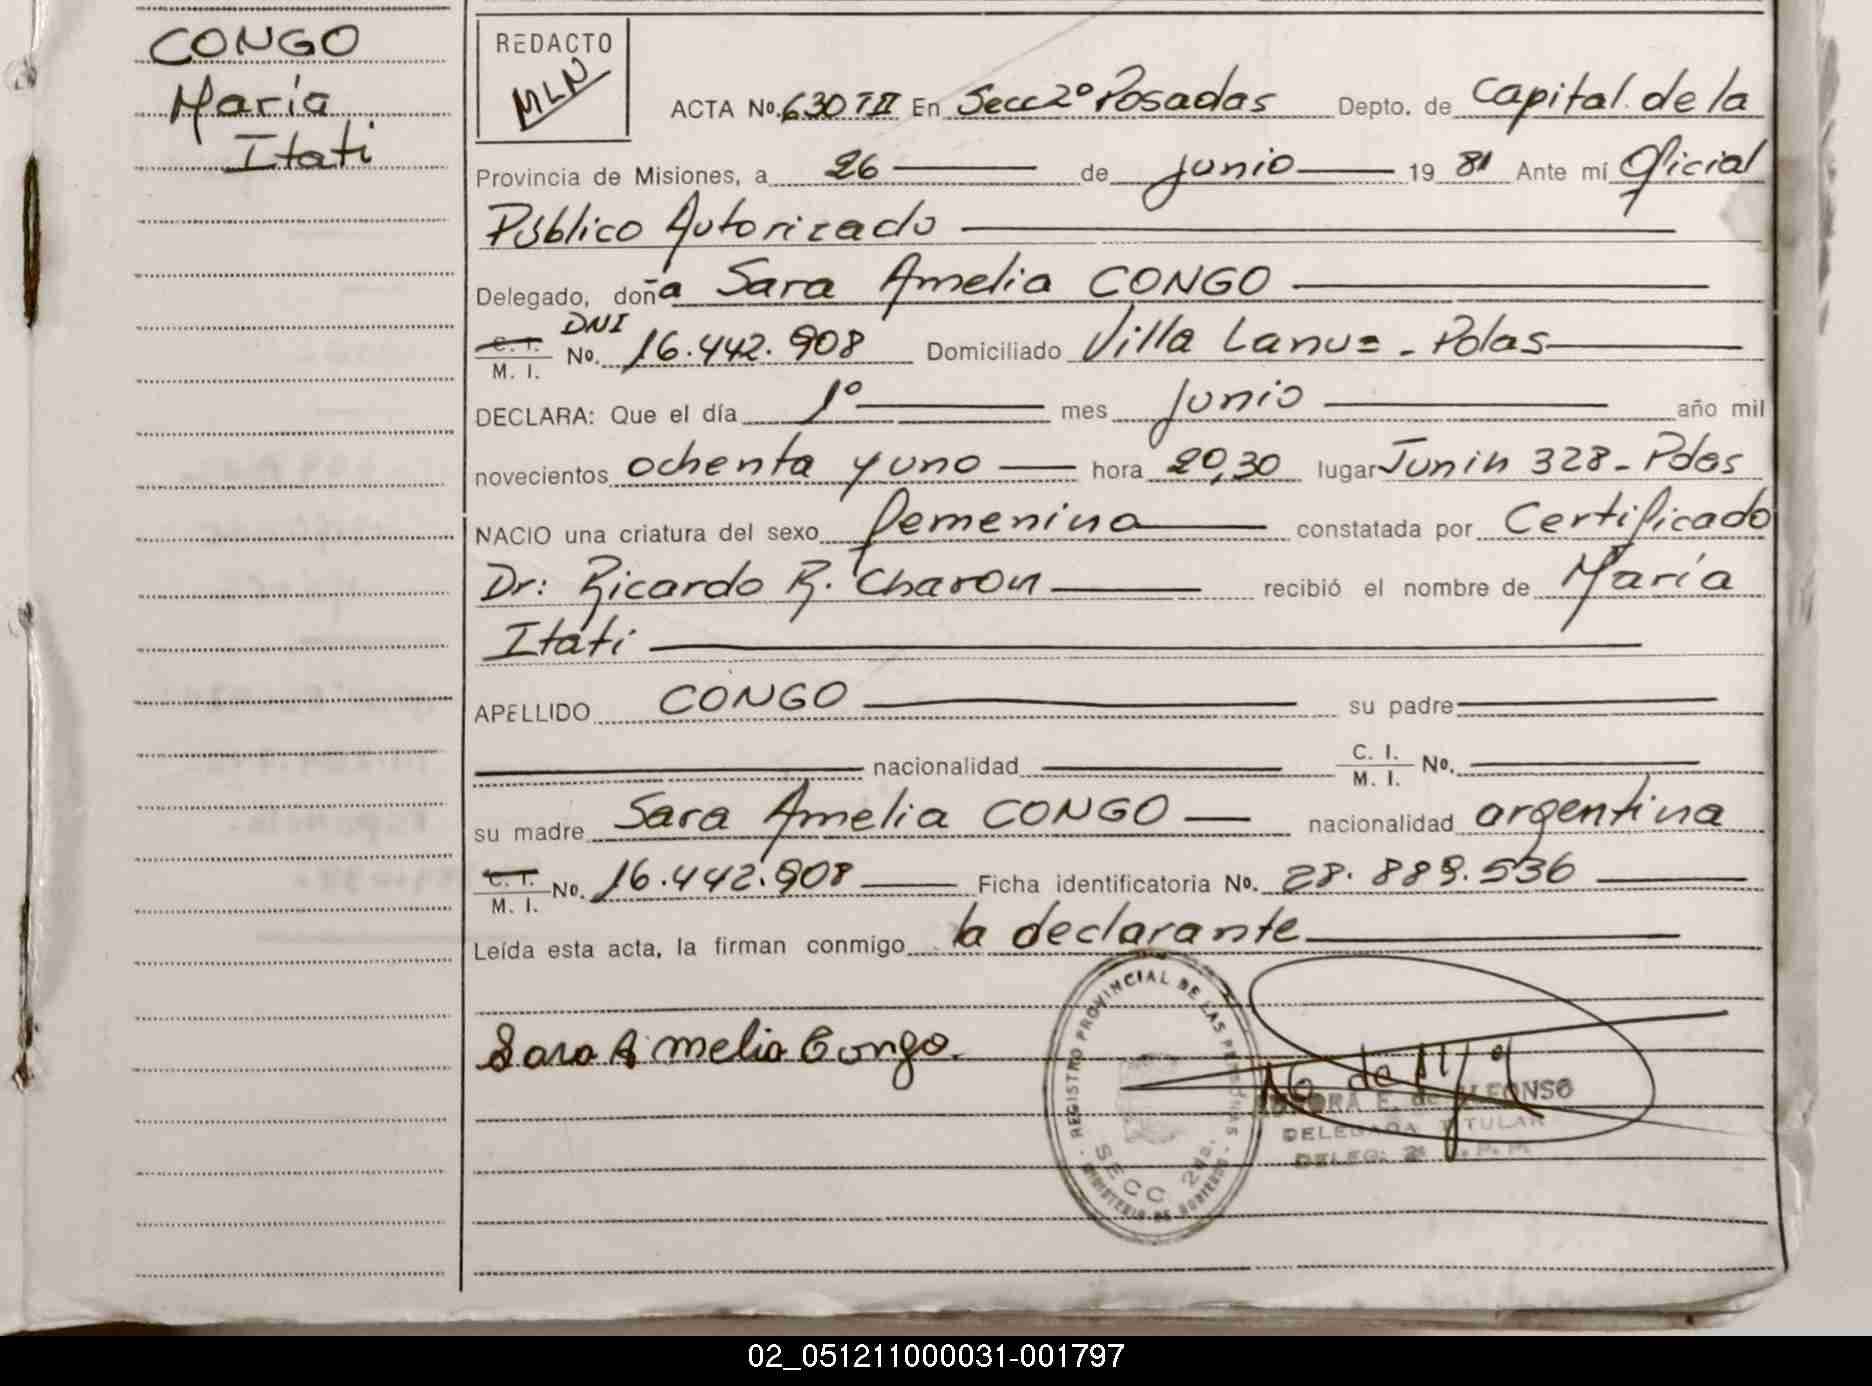 CONGO
María
Itati
REDACTO
MLN
ACTA No. 630 T II En Secc 2º Posadas Depto. de Capital de la
Provincia de Misiones, a 26 de junio 19 81 Ante mí Oficial
Público Autorizado
Delegado, doña Sara Amelia CONGO
DNI
C. I.
M. I. No. 16.442.908 Domiciliado Villa Lanus - Pdas
DECLARA: Que el día 1º mes junio año mil
novecientos ochenta y uno hora 20,30 lugar Junin 328 - Pdas
NACIO una criatura del sexo femenino constatada por Certificado
Dr: Ricardo R. Charon recibió el nombre de María
Itati
APELLIDO CONGO su padre
nacionalidad C. I. M. I. No.
su madre Sara Amelia CONGO nacionalidad argentina
C. I. M. I. No. 16.442.908 Ficha identificatoria No. 28.889.536
Leída esta acta, la firman conmigo la declarante
Sara Amelia Congo.
REGISTRO PROVINCIAL DE LAS PERSONAS
SECC 2da.
MINISTERIO DE GOBIERNO
E. de ALFONSO
DELEGADA TITULAR
DELEG. 2ª
02_051211000031-001797